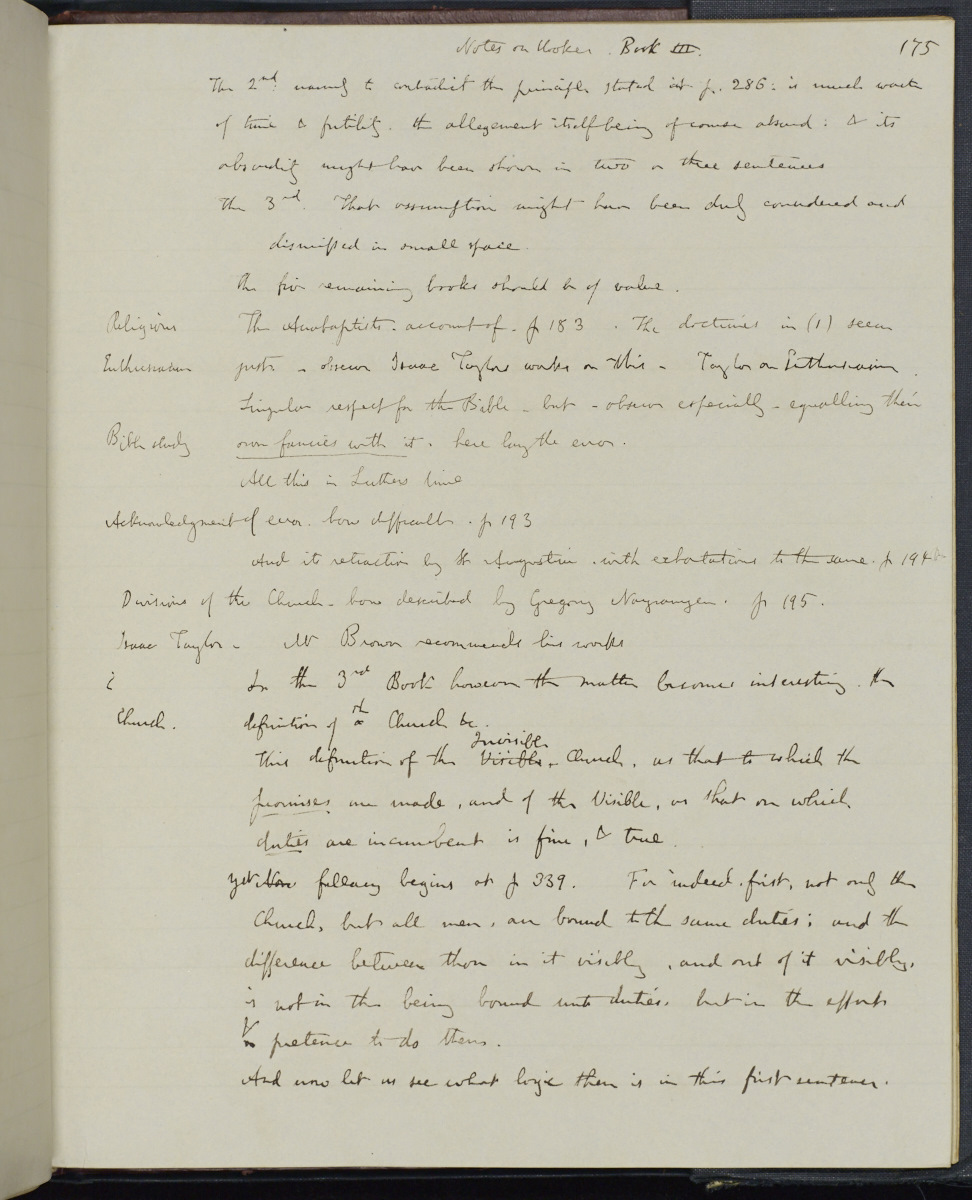 Notes on Hooker. Book III. 175
The 2nd. namely to contradict the principle stated at p. 286: is much waste
of time & futility. the allegement itself being of course absurd: & its
absurdity might have been shown in two or three sentences
The 3rd. That assumption might have been duly considered and
dismissed in small space.
The five remaining books should be of value.
Religious The Anabaptists. account of. p 183. The doctrines in (1) seem
Enthusiasm just - observe Isaac Taylors works on this - Taylor on Enthusiasm.
Singular respect for the Bible - but - observe especially - equalling their
Bible study own fancies with it. here lay the error.
All this in Luthers time
Acknowledgment of error. how difficult. p 193
And its retraction by St Augustine. with exhortations to the same. p 194
Divisions of the Church - how described by Gregory Nazianzen. p 195.
Isaac Taylor - Mr Brown recommends his works
In the 3rd Book however the matter becomes interesting. the
Church. definition of Church &c.
This definition of the Visible Invisible Church, as that to which the
promises are made, and of the Visible, as that on which
duties are incumbent is fine, & true.
yet fallacy begins at p 339. For indeed first, not only the
Church, but all men, are bound to the same duties; and the
difference between those in it visibly, and out of it visibly,
is not in the being bound unto duties, but in the efforts
& pretence to do them.
And now let us see what logic there is in this first sentence.